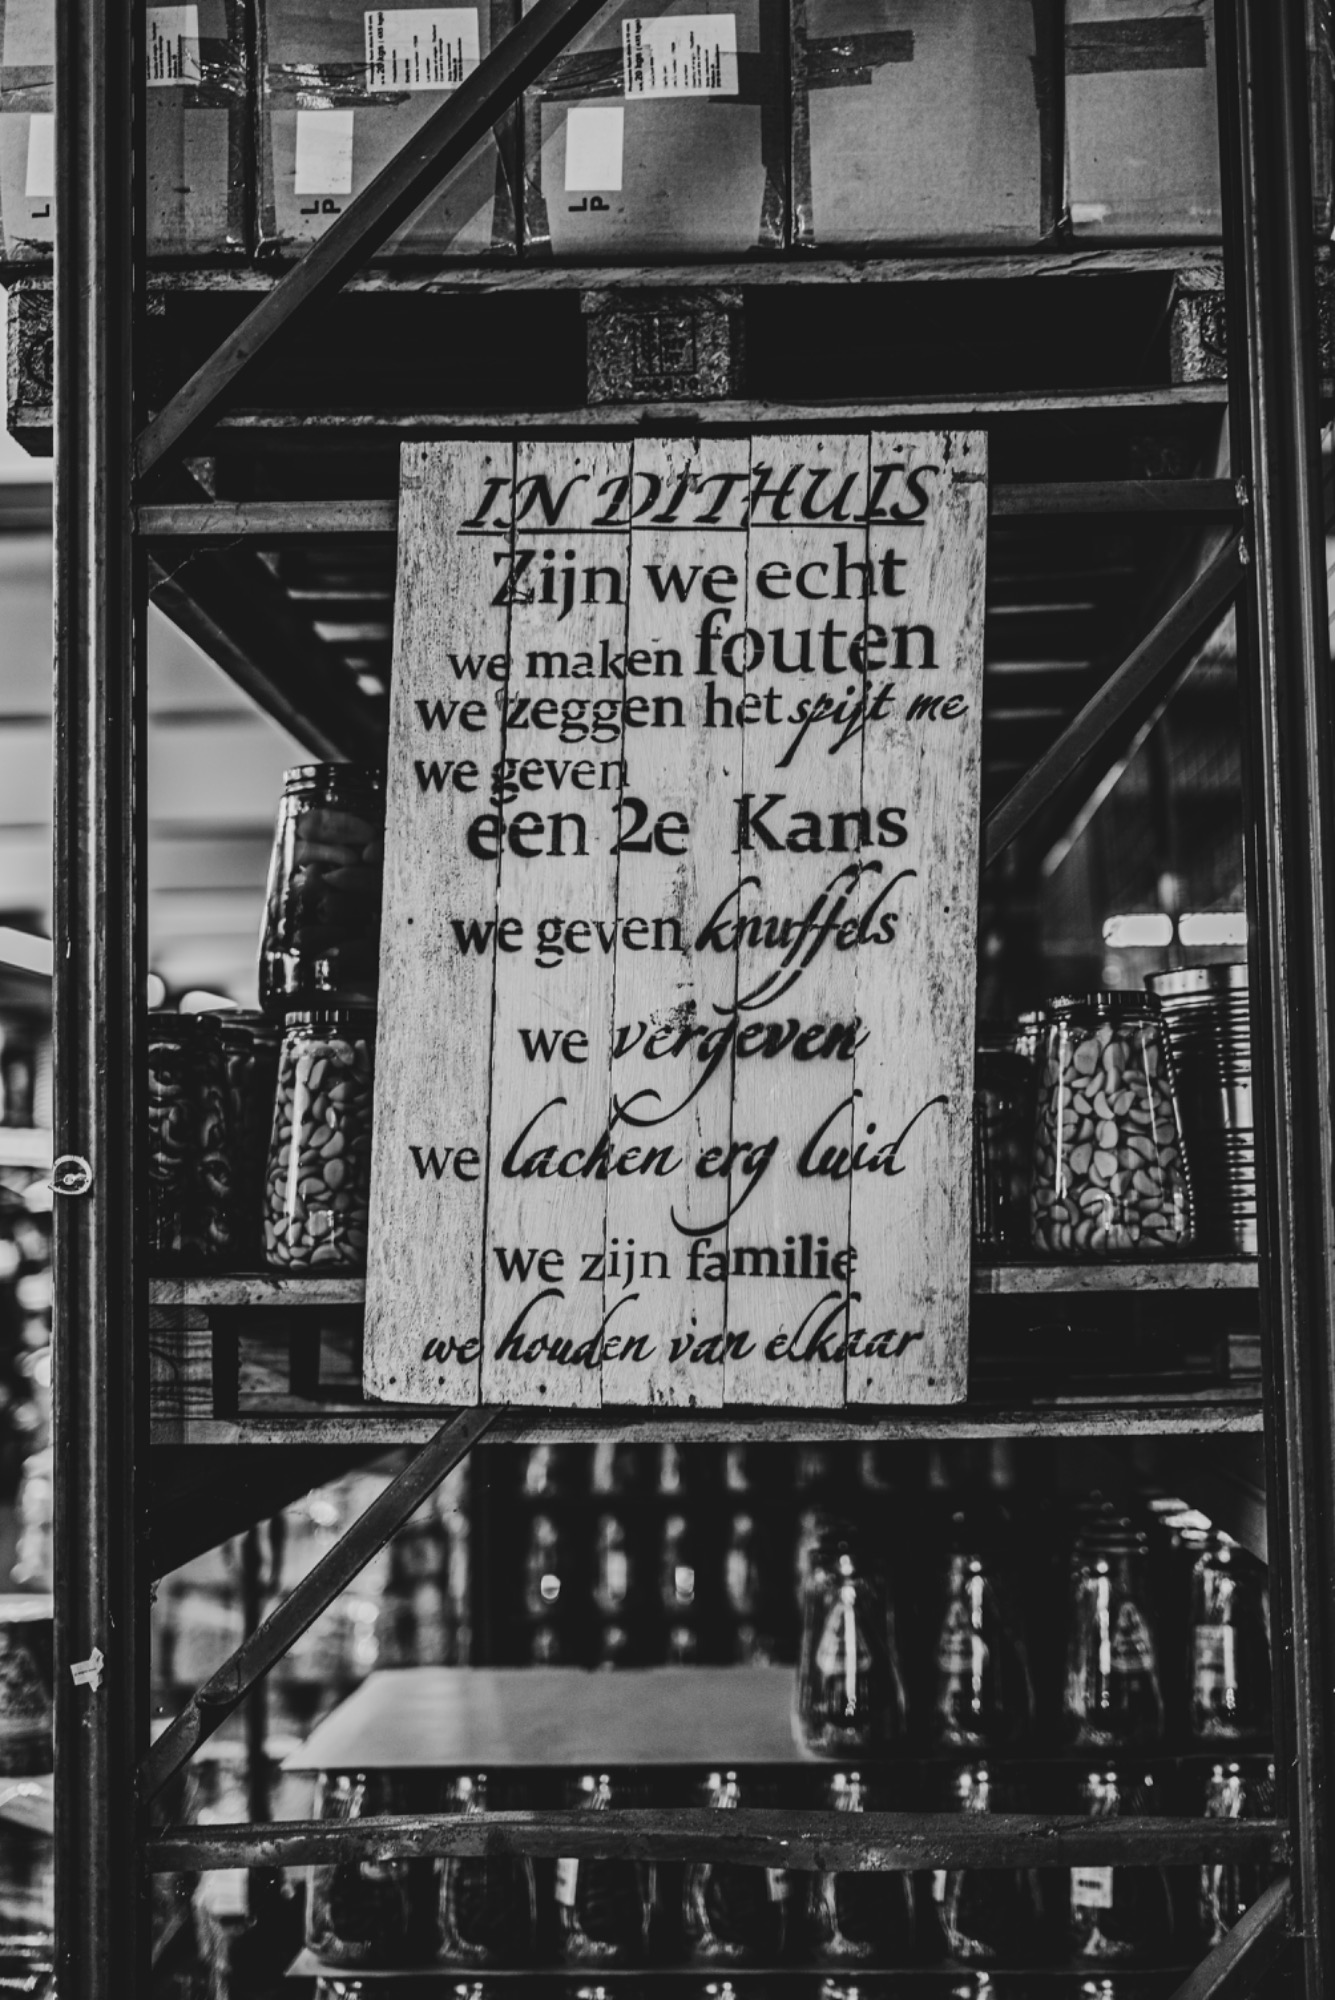 L
L
P
L
P
IN DIT HUIS
Zijn we echt
we maken fouten
we zeggen het spijt me
we geven
een 2e Kans
we geven knuffels
we vergeven
we lachen erg luid
we zijn familie
we houden van elkaar